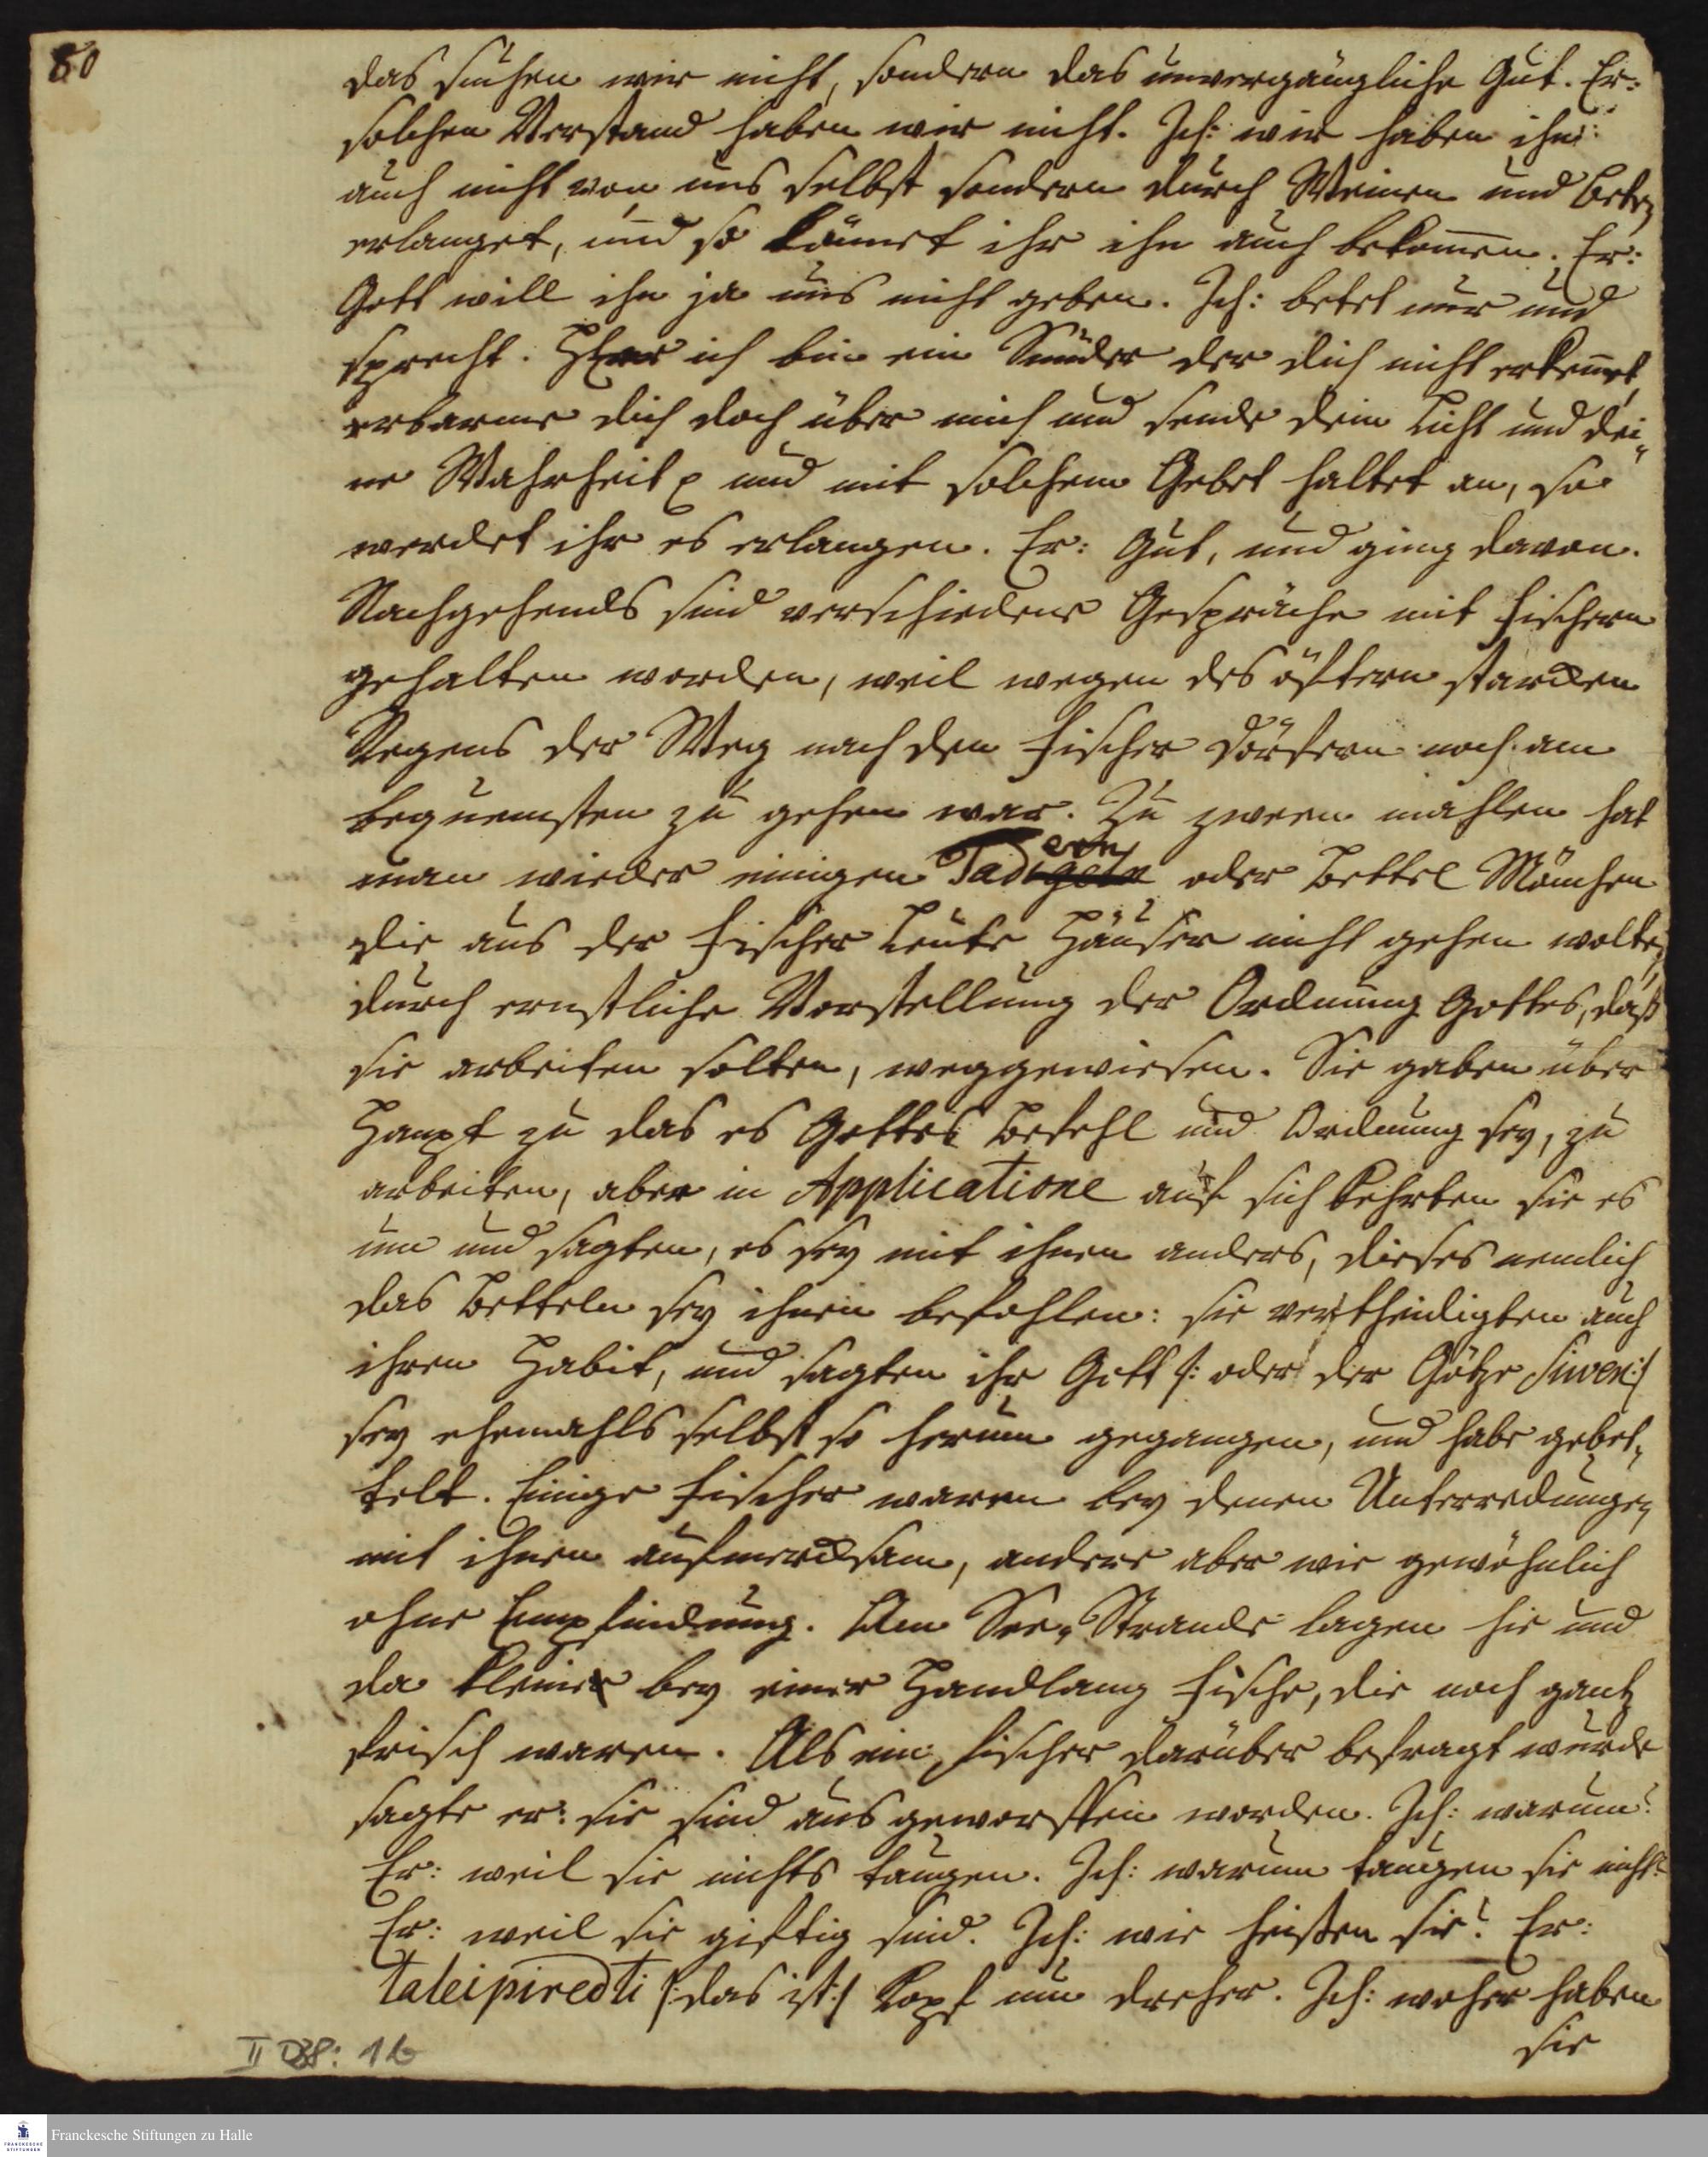 80
das suchen wir nicht, sondern das unvergängliche Gut. Er:
solchen Verstand haben wir nicht. Ich: wir haben ihn
auch nicht von uns selbst sondern durch Weinen und beten
erlanget, und so könnet ihr ihn auch bekommen. Er:
Gott will ihn ja uns nicht geben. Ich: betet nur und
sprecht. HErr ich bin ein Sünder der dich nicht erkennet,
erbarme dich doch über mich und sende dein Licht und dei„
ne Wahrheit und mit solchem Gebet haltet an, so
werdet ihr es erlangen. Er: Gut, und ging davon.
Nachgehends sind verschiedene Gespräche mit Fischern
gehalten worden, weil wegen des öftern starcken
Regens der Weg nach den Fischer Dörfern noch am
bequemsten zu gehen war. Zu zween mahlen hat
man wieder einigen Tadigern oder Bettel Mönchen
die aus der Fischer Leute Häuser nicht gehen wolten,
durch ernstliche Vorstellung der Ordnung Gottes, daß
sie arbeiten solten, weggewiesen. Sie gaben über
Haupt zu das es Gottes Befehl und Ordnung sey, zu
arbeiten, aber in Applicatione auf sich kehrten sie es
um und sagten, es sey mit ihnen anders, dieses nemlich
das Betteln sey ihnen befohlen: sie vertheidigten auch
ihren Habit, und sagten ihr Gott /: oder der Götze Siwen :/
sey ehemahls selbst so herum gegangen, und habe gebet„
telt. Einige Fischer waren bey denen Unterredungen
mit ihnen aufmercksam, andere aber wie gewöhnlich
ohne Empfindung. Am See„Strande lagen hie und
da kleine bey einer Handlang Fische, die noch gantz
frisch waren. Als ein Fischer darüber befragt wurde
sagte er: sie sind ausgeworffen worden. Ich: warum?
Er: weil sie nichts taugen. Ich: warum taugen sie nicht?
Er: weil sie giftig sind. Ich: wie heißen sie? Er:
taleipiredti /: das ist :/ Kopf um dreher. Ich: woher haben
sie
II 1b
Franckesche Stiftungen zu Halle
FRANCKESCHE
STIFTUNGEN